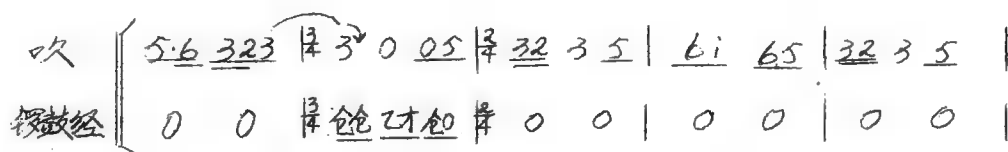 吹 5·6 323 |3/4 3 0 05 |2/4 32 3 5 | 6i 65 | 32 3 5 |
锣鼓经 0 0 |3/4 仓仓 乙才 仓0 |2/4 0 0 | 0 0 | 0 0 |